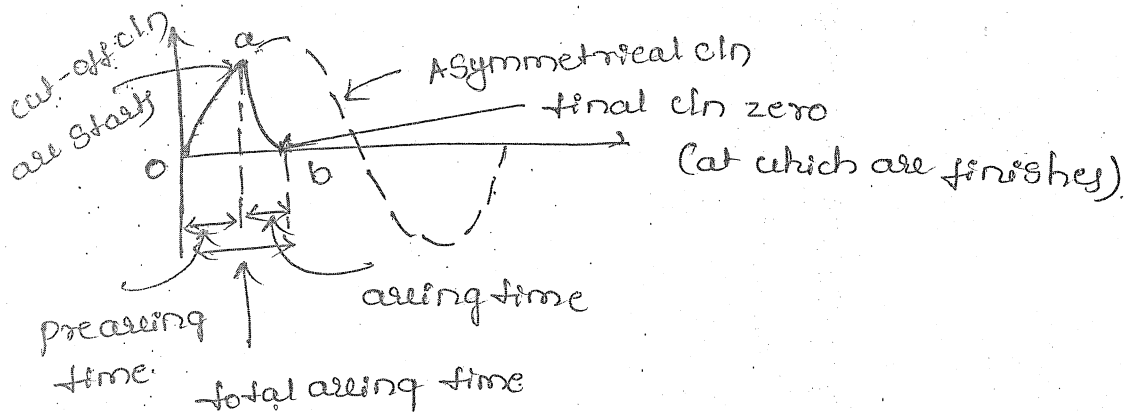 cut-off c/n
arc starts
a
Asymmetrical c/n
final c/n zero
(at which arc finishes).
o
b
prearcing
time.
arcing time
total arcing time